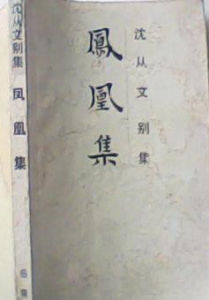 沈从文别集
鳳凰集
沈从文别集
凤凰集